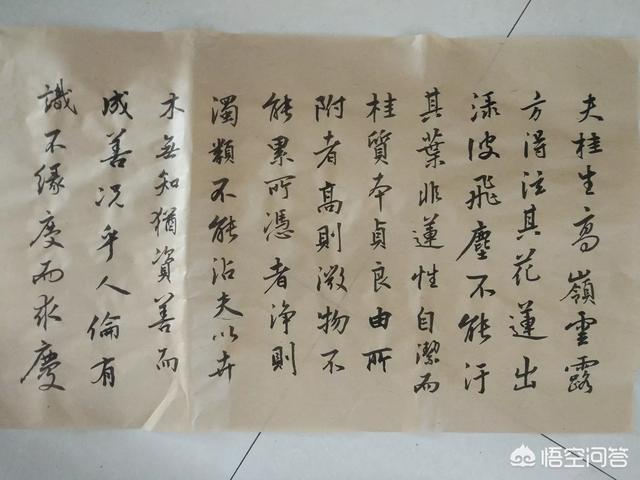 夫桂生高嶺雲露
方得泫其花蓮出
渌波飛塵不能汙
其葉非蓮性自潔而
桂質本貞良由所
附者高則微物不
能累所憑者浄則
濁類不能沾夫以卉
木無知猶資善而
成善况乎人倫有
識不緣慶而求慶
悟空问答